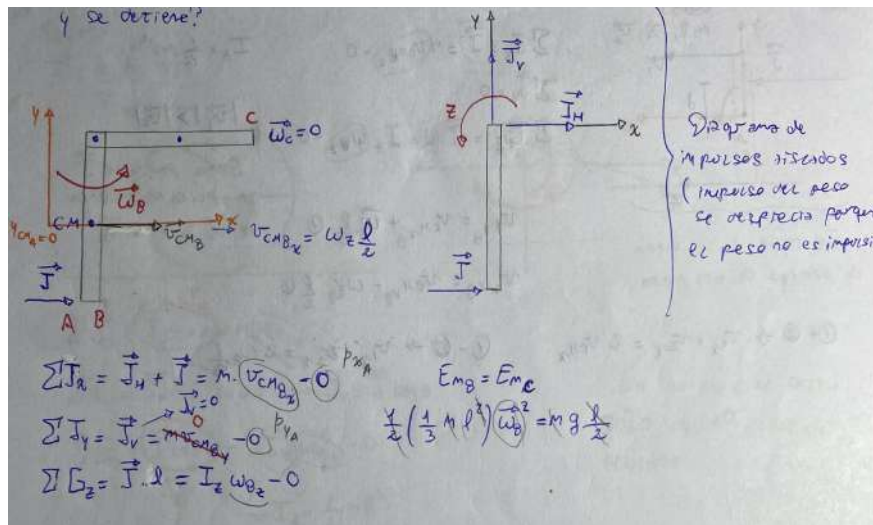 y se detiene?
Y
C
ω⃗_C = 0
ω⃗_B
Y_CM_A = 0
CM
v⃗_CM_B
x
v_CM_B_x = ω_z l/2
J⃗
A B
Y
J⃗_V
Z
J⃗_H
x
J⃗
Diagrama de
impulsos aislados
(impulso del peso
se desprecia porque
el peso no es impulsi
ΣJ_x = J⃗_H + J⃗ = m · v_CM_B_x - 0 p_x_A
J⃗_V = 0
ΣJ_y = J⃗_V = m v_CM_B_y 0 - 0 p_y_A
ΣG_z = J⃗ · l = I_z ω_B_z - 0
E_m_B = E_m_C
1/2 (1/3 m l²) ω⃗_B² = m g l/2